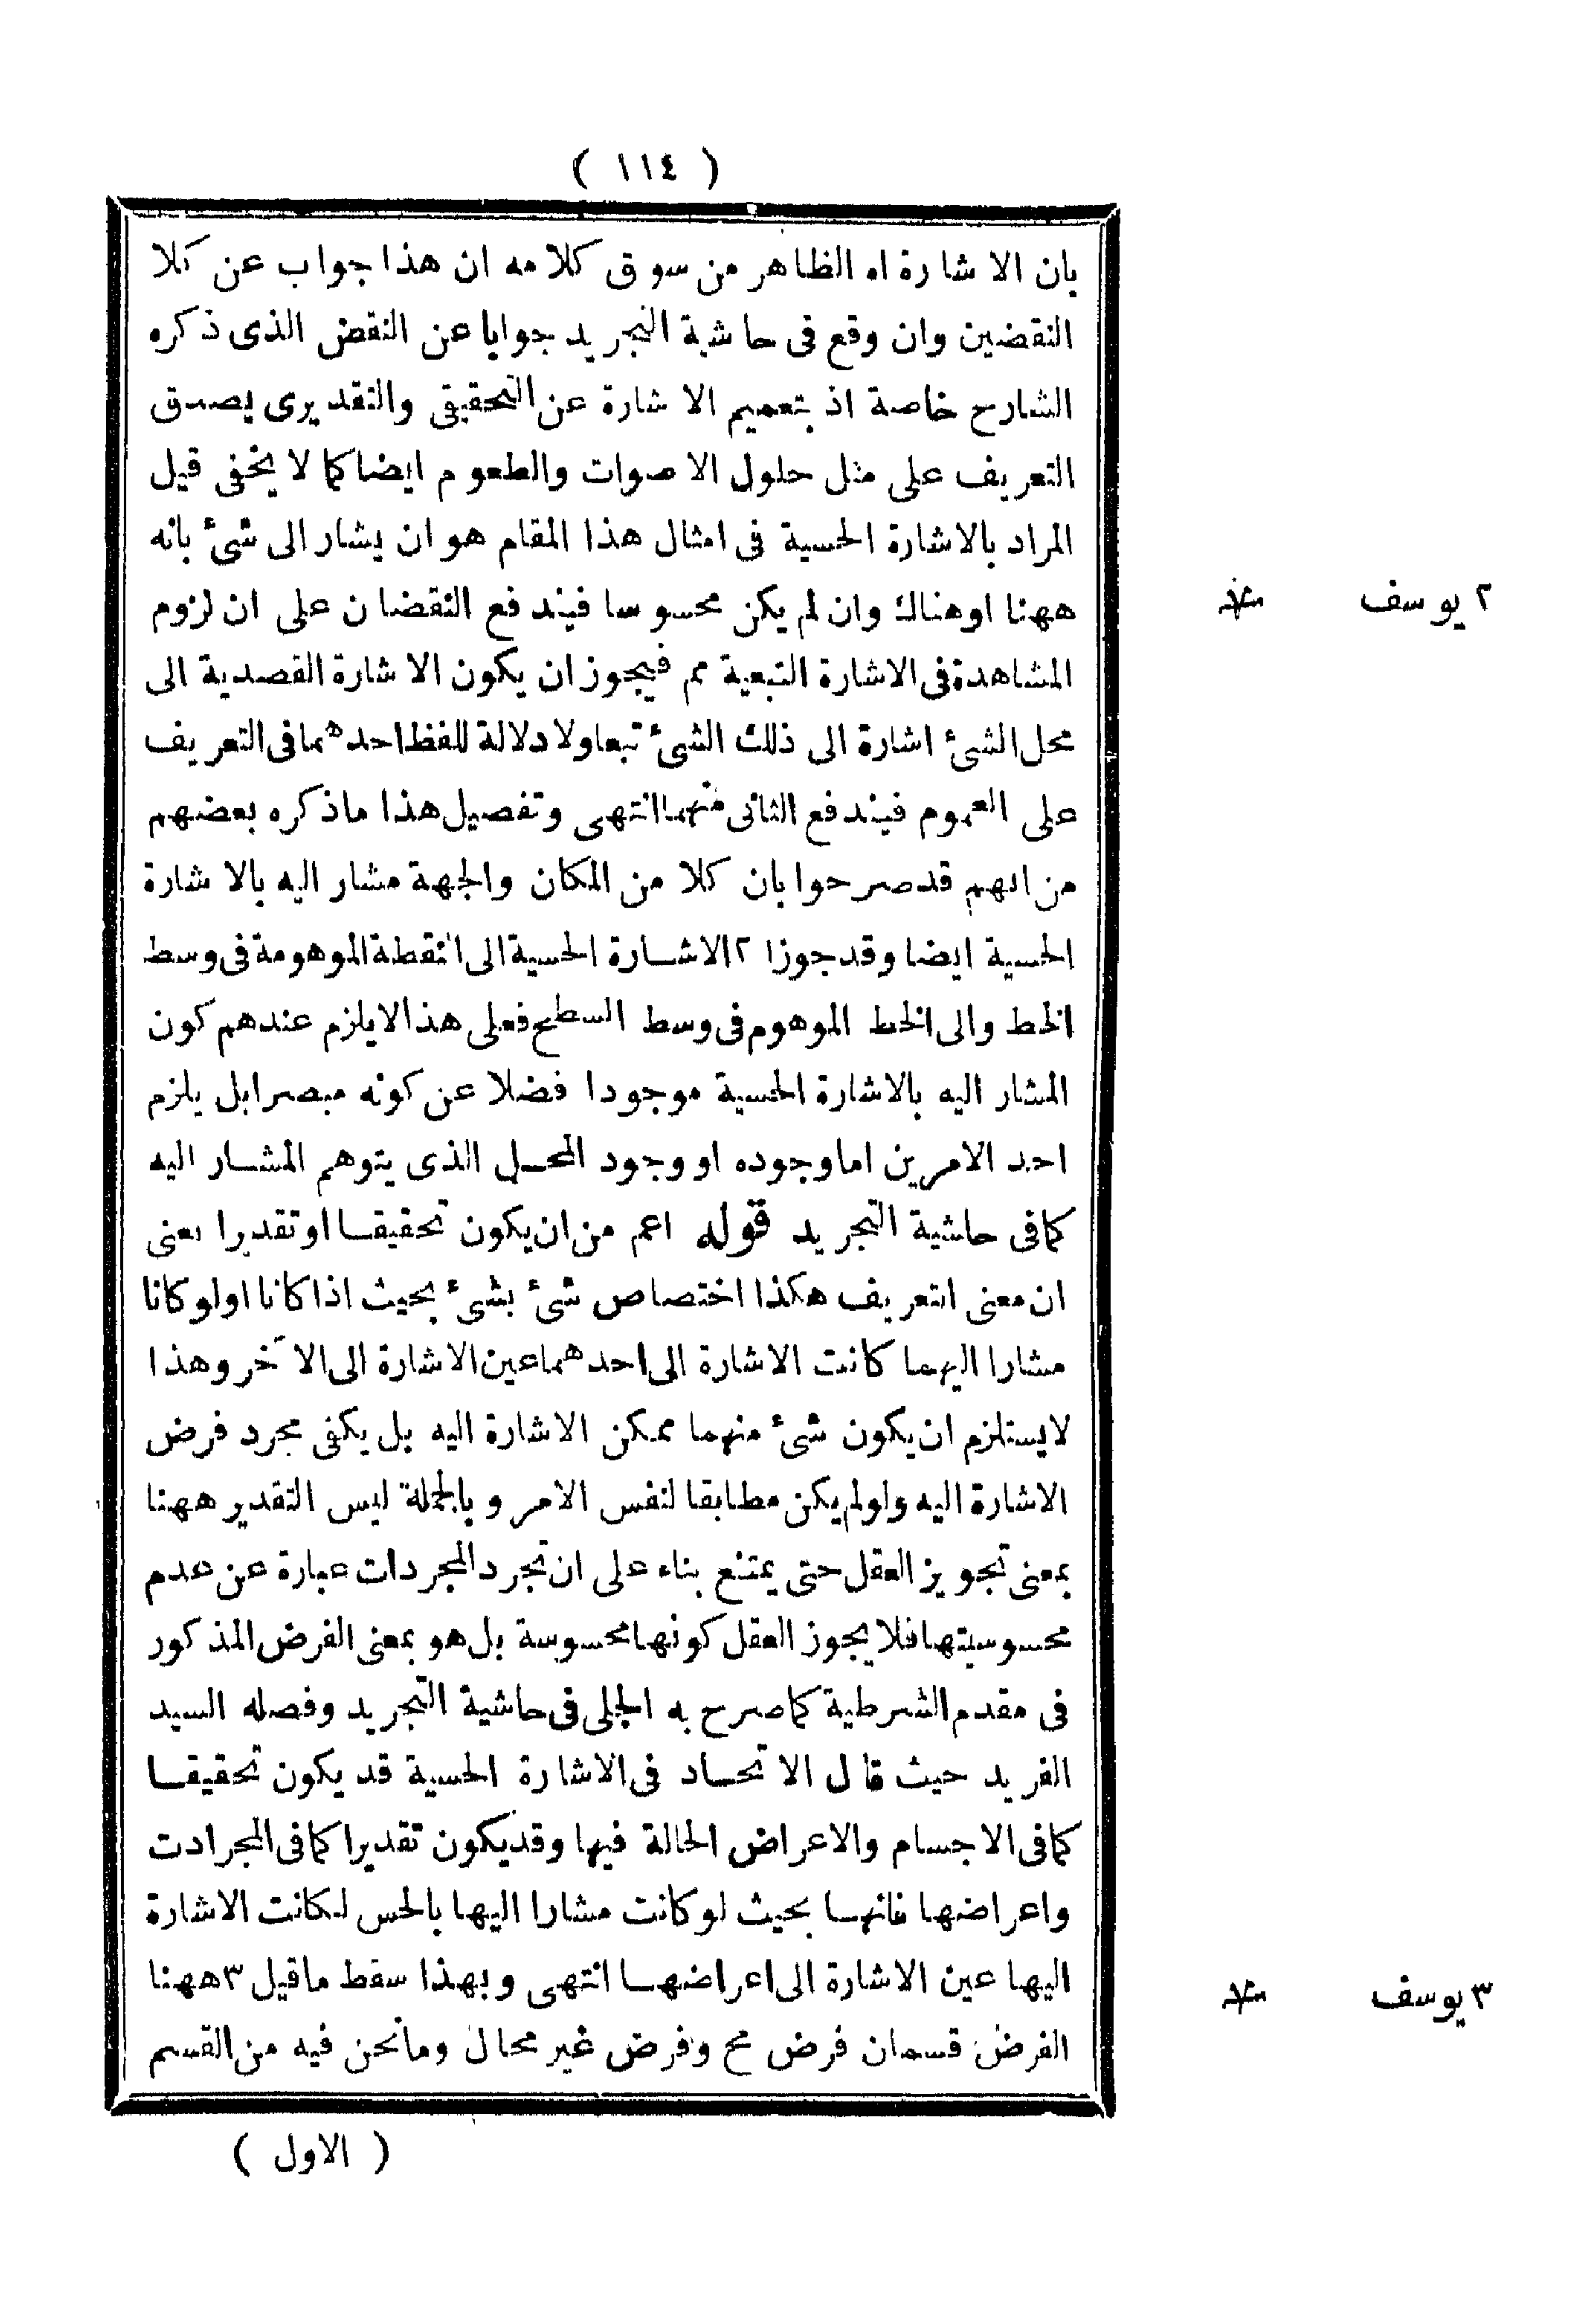 ( ١١٤ )
بان الاشارة اه الظاهر من سوق كلامه ان هذا جواب عن كلا
النقضين وان وقع فى حاشية التجريد جوابا عن النقض الذى ذكره
الشارح خاصة اذ بتعميم الاشارة عن التحقيقى والتقديرى يصدق
التعريف على مثل حلول الاصوات والطعوم ايضا كما لا يخفى قيل
المراد بالاشارة الحسية فى امثال هذا المقام هو ان يشار الى شئ بانه
ههنا او هناك وان لم يكن محسوسا فيندفع النقضان على ان لزوم
المشاهدة فى الاشارة التبعية مم فيجوز ان يكون الاشارة القصدية الى
محل الشئ اشارة الى ذلك الشئ تبعا ولا دلالة للفظ احدهما فى التعريف
على العموم فيندفع الثانى منهما انتهى وتفصيل هذا ماذكره بعضهم
من انهم قد صرحوا بان كلا من المكان والجهة مشار اليه بالاشارة
الحسية ايضا وقد جوزا ٢ الاشارة الحسية الى النقطة الموهومة فى وسط
الخط والى الخط الموهوم فى وسط السطح فعلى هذا لا يلزم عندهم كون
المشار اليه بالاشارة الحسية موجودا فضلا عن كونه مبصرا بل يلزم
احد الامرين اما وجوده او وجود المحل الذى يتوهم المشار اليه
كما فى حاشية التجريد قوله اعم من ان يكون تحقيقا او تقديرا يعنى
ان معنى التعريف هكذا اختصاص شئ بشئ بحيث اذا كانا او لو كانا
مشارا اليهما كانت الاشارة الى احدهما عين الاشارة الى الآخر وهذا
لايستلزم ان يكون شئ منهما ممكن الاشارة اليه بل يكفى مجرد فرض
الاشارة اليه ولو لم يكن مطابقا لنفس الامر وبالجملة ليس التقدير ههنا
بمعنى تجويز العقل حتى يمتنع بناء على ان تجرد المجردات عبارة عن عدم
محسوسيتها فلا يجوز العقل كونها محسوسة بل هو بمعنى الفرض المذكور
فى مقدم الشرطية كما صرح به الجلى فى حاشية التجريد وفصله السيد
الفريد حيث قال الاتحاد فى الاشارة الحسية قد يكون تحقيقا
كما فى الاجسام والاعراض الحالة فيها وقد يكون تقديرا كما فى المجرادت
واعراضها فانها بحيث لو كانت مشارا اليها بالحس لكانت الاشارة
اليها عين الاشارة الى اعراضها انتهى وبهذا سقط ماقيل ٣ ههنا
الفرض قسمان فرض مح وفرض غير محال ومانحن فيه من القسم
( الاول )
٢ يوسف
٣ يوسف